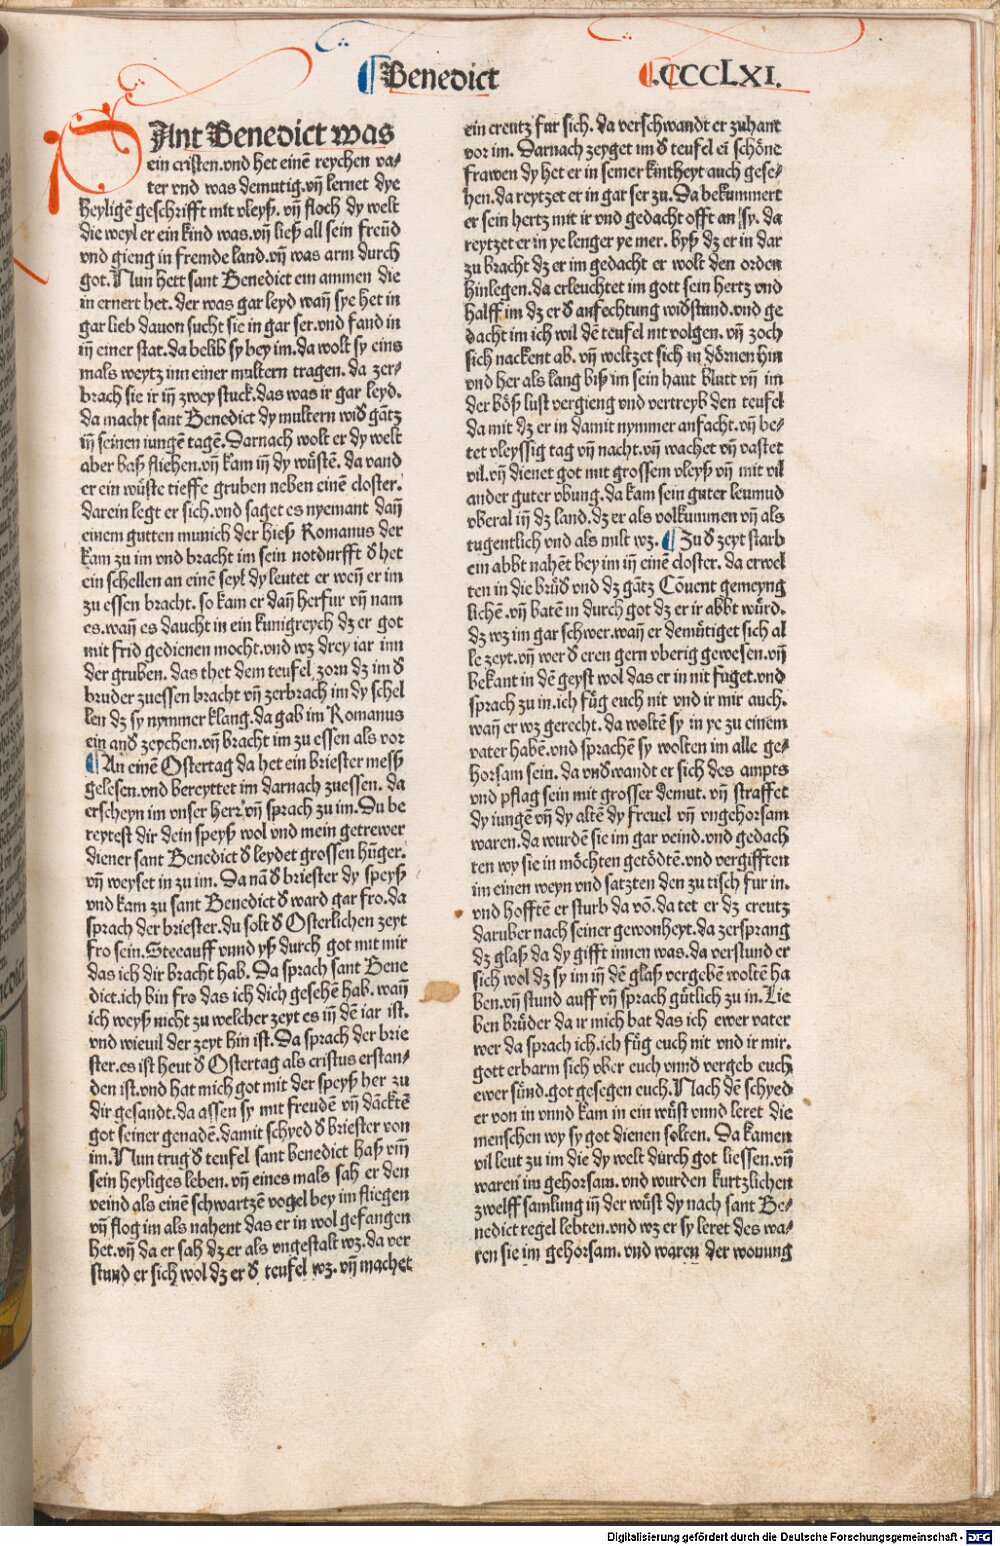 Benedict
.CCCCLXI.
SAnt Benedict was
ein cristen.vnd het einē reychen va-
ter vnd was demutig.vn̄ lernet dye
heyligē geschrifft mit vleyß. vn̄ floch dy welt
die weyl er ein kind was.vn̄ ließ all sein freüd
vnd gieng in fremde land.vn̄ was arm durch
got. Nun hett sant Benedict ein ammen die
in ernert het. der was gar leyd wan̄ sye het in
gar lieb dauon sucht sie in gar ser.vnd fand in
in̄ einer stat.da belib sy bey im.da wolt sy eins
mals weytz inn einer multern tragen. da zer-
brach sie ir in̄ zwey stuck.das was ir gar leyd.
da macht sant Benedict dy multern wid̄ gātz
in̄ seinen iungē tagē. Darnach wolt er dy welt
aber baß fliehen.vn̄ kam in̄ dy wüstē. da vand
er ein wüste tieffe gruben neben einē closter.
darein legt er sich.vnd saget es nyemant dan̄
einem gutten munich der hieß Romanus der
kam zu im vnd bracht im sein notdurfft d̄ het
ein schellen an einē seyl dy leutet er wen̄ er im
zu essen bracht. so kam er dan̄ herfur vn̄ nam
es.wan̄ es daucht in ein kunigreych dz er got
mit frid gedienen mocht.vnd wz drey iar inn
der gruben. das thet dem teufel zorn dz im d̄
bruder zuessen bracht vn̄ zerbrach im dy schel
len dz sy nymmer klang.da gab im Romanus
ein and̄ zeychen.vn̄ bracht im zu essen als vor
An einē Ostertag da het ein briester mesß
gelesen.vnd bereyttet im darnach zuessen. da
erscheyn im vnser herr vn̄ sprach zu im. Du be
reytest dir dein speyß wol vnd mein getrewer
diener sant Benedict d̄ leydet grossen hūger.
vn̄ weyset in zu im. Da nā d̄ briester dy speyß
vnd kam zu sant Benedict d̄ ward gar fro.da
sprach der briester.du solt d̄ Osterlichen zeyt
fro sein.Steeauff vnnd yß durch got mit mir
das ich dir bracht hab. Da sprach sant Bene
dict.ich bin fro das ich dich gesehē hab. wan̄
ich weyß nicht zu welcher zeyt es in̄ dē iar ist.
vnd wieuil der zeyt hin ist. Da sprach der brie
ster.es ist heut d̄ Ostertag als cristus erstan-
den ist.vnd hat mich got mit der speyß her zu
dir gesandt.da assen sy mit freudē vn̄ dācktē
got seiner genadē.damit schyed d̄ briester von
im. Nun trug d̄ teufel sant benedict haß vm̄
sein heyliges leben. vn̄ eines mals sah er den
veind als einē schwartzē vogel bey im fliegen
vn̄ flog im als nahent das er in wol gefangen
het.vn̄ da er sah dz er als vngestalt wz.da ver
stund er sich wol dz er d̄ teufel wz. vn̄ machet
ein creutz fur sich. da verschwandt er zuhant
vor im. Darnach zeyget im d̄ teufel ei schöne
frawen dy het er in seiner kintheyt auch gese-
hen.da reytzet er in gar ser zu. Da bekummert
er sein hertz mit ir vnd gedacht offt an sy. da
reytzet er in ye lenger ye mer. byß dz er in dar
zu bracht dz er im gedacht er wolt den orden
hinlegen.da erleuchtet im gott sein hertz vnd
halff im dz er d̄ anfechtung widstund.vnd ge
dacht im ich wil dē teufel nit volgen. vn̄ zoch
sich nackent ab. vn̄ weltzet sich in dörnen hin
vnd her als lang biß im sein haut blutt vn̄ im
der böß lust vergieng vnd vertreyb den teufel
da mit dz er in damit nymmer anfacht.vn̄ be-
tet vleyssig tag vn̄ nacht.vn̄ wachet vn̄ vastet
vil.vn̄ dienet got mit grossem vleyß vn̄ mit vil
ander guter vbung.da kam sein guter leumud
vberal in̄ dz land.dz er als volkummen vn̄ als
tugentlich vnd als milt wz. Zu d̄ zeyt starb
ein abbt nahēt bey im in̄ einē closter. da erwel
ten in die brüd̄ vnd dz gātz Cōuent gemeyng
lichē.vn̄ batē in durch got dz er ir abbt würd.
dz wz im gar schwer.wan̄ er demütiget sich al
le zeyt.vn̄ wer d̄ eren gern vberig gewesen.vn̄
bekant in dē geyst wol das er in nit fuget.vnd
sprach zu in.ich füg euch nit vnd ir mir auch.
wan̄ er wz gerecht.da woltē sy in ye zu einem
vater habē.vnd sprachē sy wolten im alle ge-
horsam sein. da vnd̄wandt er sich des ampts
vnd pflag sein mit grosser demut. vn̄ straffet
dy iungē vn̄ dy altē dy freuel vn̄ vngehorsam
waren.da wurdē sie im gar veind.vnd gedach
ten wy sie in möchten getödtē.vnd vergifften
im einen weyn vnd satzten den zu tisch fur in.
vnd hofftē er sturb da vō.da tet er dz creutz
daruber nach seiner gewonheyt.da zersprang
dz glaß da dy gifft innen was.da verstund er
sich wol dz sy im in̄ dē glaß vergebē woltē ha
ben.vn̄ stund auff vn̄ sprach gütlich zu in. Lie
ben brüder da ir mich bat das ich ewer vater
wer da sprach ich.ich füg euch nit vnd ir mir.
gott erbarm sich vber euch vnnd vergeb euch
ewer sünd.got gesegen euch. Nach dē schyed
er von in vnnd kam in ein wüst vnnd leret die
menschen wy sy got dienen solten. Da kamen
vil leut zu im die dy welt durch got liessen.vn̄
waren im gehorsam. vnd wurden kurtzlichen
zwelff samlung in̄ der wüst dy nach sant Be-
nedict regel lebten.vnd wz er sy leret des wa-
ren sie im gehorsam. vnd waren der wonung
Digitalisierung gefördert durch die Deutsche Forschungsgemeinschaft - DFG